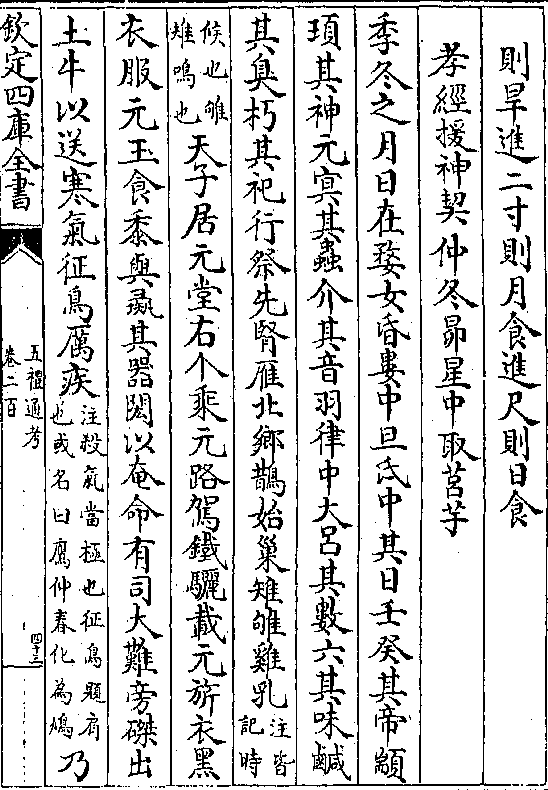 則旱進二寸則月食進尺則日食
孝經援神契仲冬昴星中取莒芋
季冬之月日在婺女昏婁中旦氐中其日壬癸其帝顓
頊其神元冥其蟲介其音羽律中大呂其數六其味鹹
其臭朽其祀行祭先腎雁北鄉鵲始巢雉雊雞乳注皆記時
候也雊雉鳴也天子居元堂右个乘元路駕鐵驪載元旂衣黑
衣服元玉食黍與彘其器閎以奄命有司大難旁磔出
土牛以送寒氣征鳥厲疾注殺氣當極也征鳥題肩也或名曰鷹仲春化為鳩乃
欽定四庫全書
五禮通考
卷二百
四十三